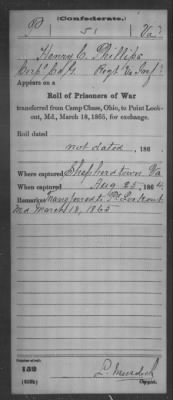 (Confederate.)
P 51 Va.
Henry C. Phillips
Corpl Co. G. Regt Va Inf.
Appears on a
Roll of Prisoners of War
transferred from Camp Chase, Ohio, to Point Look-
out, Md., March 18, 1865, for exchange.
Roll dated
not dated , 186
Where captured Shepherdstown Va
When captured Aug 25 , 1864
Remarks: Transferred to Pt Lookout
Md March 18, 1865
Number of roll:
139
Copyist.